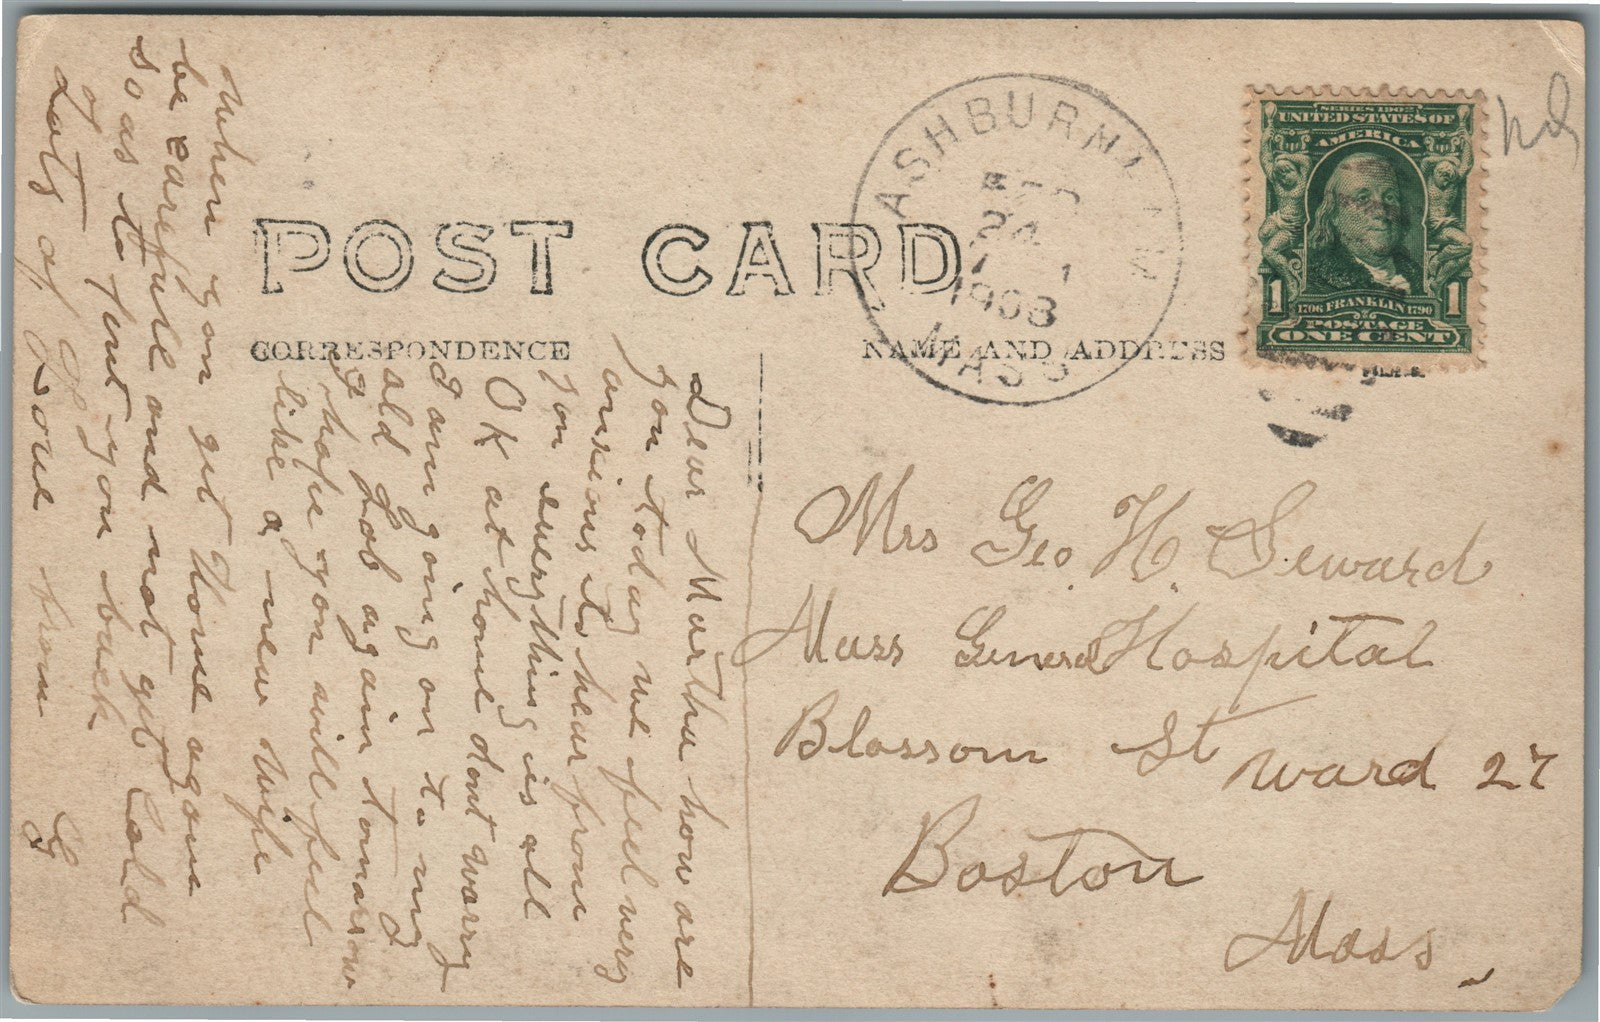 POST CARD
CORRESPONDENCE
NAME AND ADDRESS
ASHBURNHAM
FEB
24
1908
MASS
SERIES 1902
UNITED STATES OF
AMERICA
1 1
1706 FRANKLIN 1790
POSTAGE
ONE CENT
Mrs Geo. H. Seward
Mass General Hospital
Blossom St ward 27
Boston
Mass
Dear Martha how are
you today we feel very
anxious to hear from
you everything is all
OK at home dont worry
I am going on to my
old Job again tomorrow
I hope you will feel
like a new wife
When you get home agane
be carefull and not get Cold
so as to put you back
Lots of Love from G